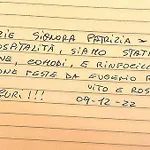 ZIE SIGNORA PATRIZIA >
OSPITALITÀ, SIAMO STATI
NE, COMODI, E RINFOCILL
ONE FESTE DA EUGENIO R
VITO E ROS
GURI!!! 09-12-22